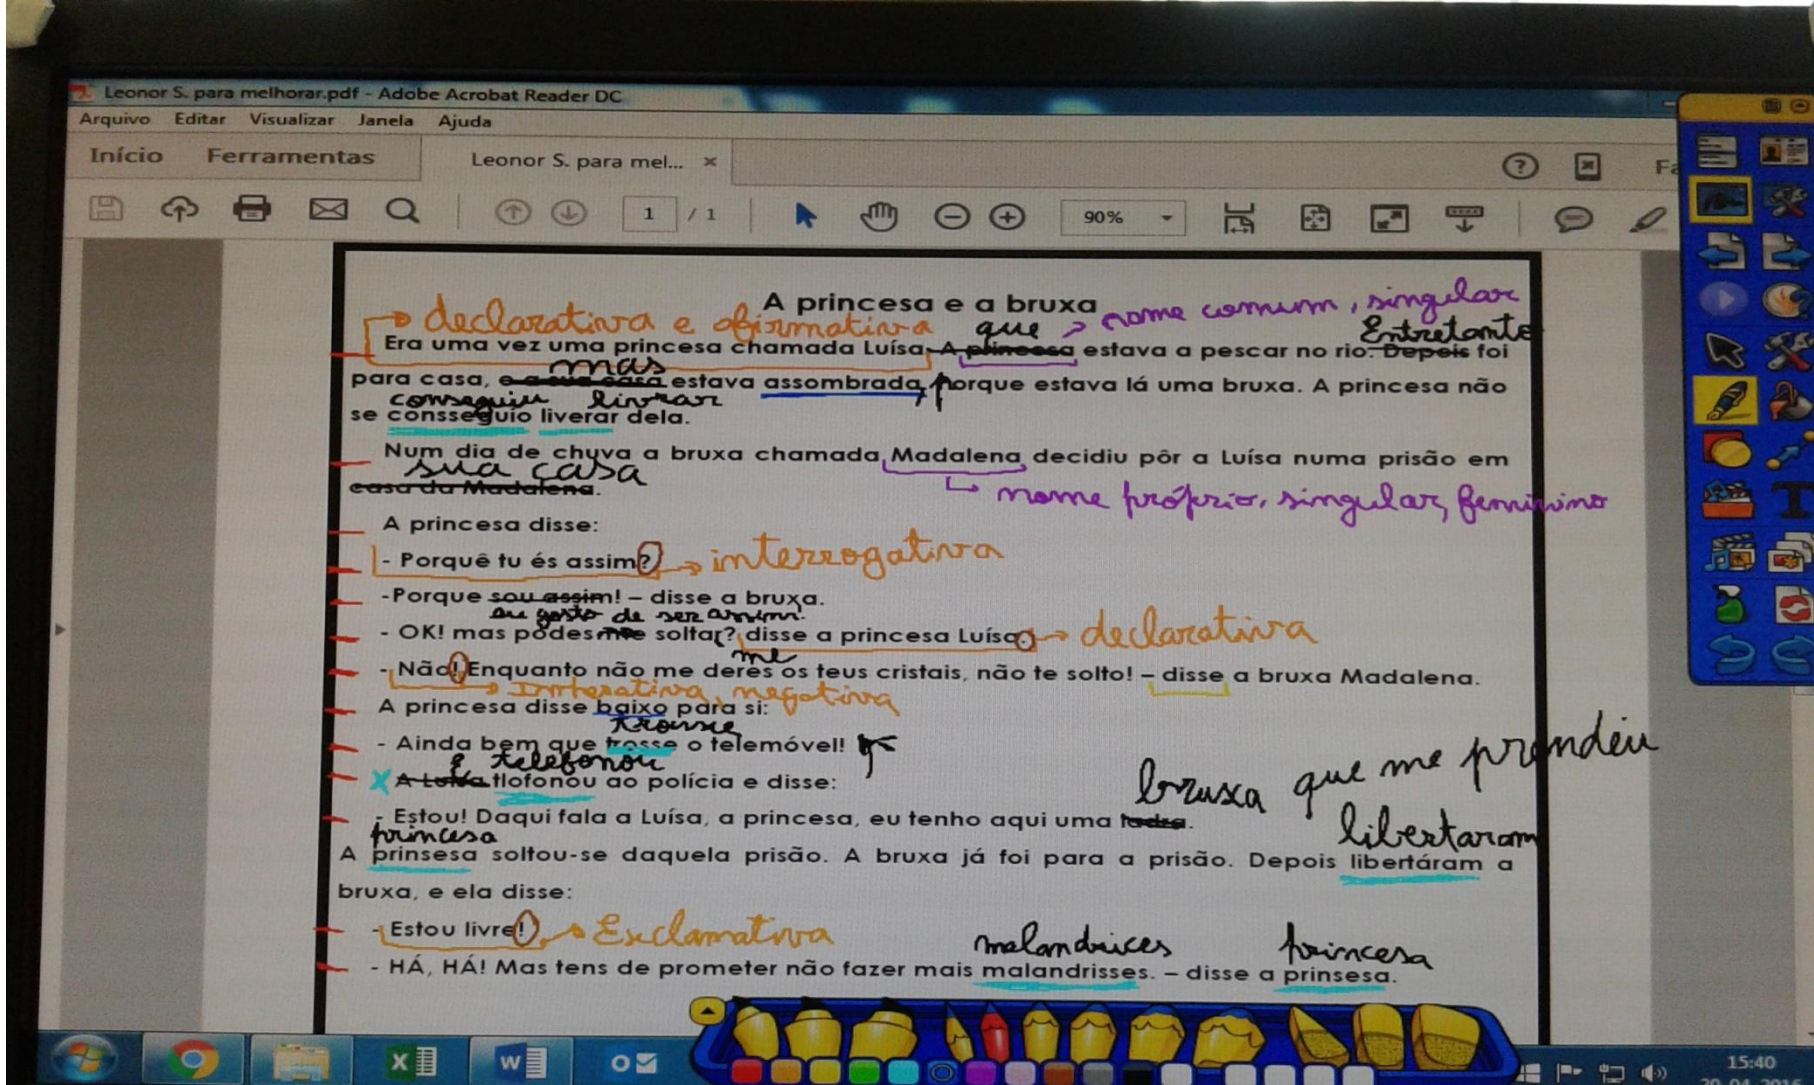 Leonor S. para melhorar.pdf - Adobe Acrobat Reader DC
Arquivo Editar Visualizar Janela Ajuda
Início Ferramentas Leonor S. para mel... ×
1 / 1 90%
A princesa e a bruxa
declarativa e afirmativa que nome comum, singular
Entretanto
Era uma vez uma princesa chamada Luísa. A princesa estava a pescar no rio. Depois foi
mas
para casa, e a sua casa estava assombrada, porque estava lá uma bruxa. A princesa não
conseguiu livrar
se consseguio liverar dela.
Num dia de chuva a bruxa chamada Madalena decidiu pôr a Luísa numa prisão em
sua casa
casa da Madalena.
nome próprio, singular, feminino
A princesa disse:
- Porquê tu és assim? interrogativa
-Porque sou assim! – disse a bruxa.
eu gosto de ser assim!
- OK! mas podes me soltar? disse a princesa Luísa. declarativa
me
- Não! Enquanto não me deres os teus cristais, não te solto! – disse a bruxa Madalena.
Imperativa, negativa
A princesa disse baixo para si:
trouxe
- Ainda bem que trosse o telemóvel!
e telefonou
X A Luísa tlofonou ao polícia e disse:
bruxa que me prendeu
- Estou! Daqui fala a Luísa, a princesa, eu tenho aqui uma
princesa libertaram
A prinsesa soltou-se daquela prisão. A bruxa já foi para a prisão. Depois libertáram a
bruxa, e ela disse:
- Estou livre! Exclamativa
malandrices princesa
- HÁ, HÁ! Mas tens de prometer não fazer mais malandrisses. – disse a prinsesa.
15:40